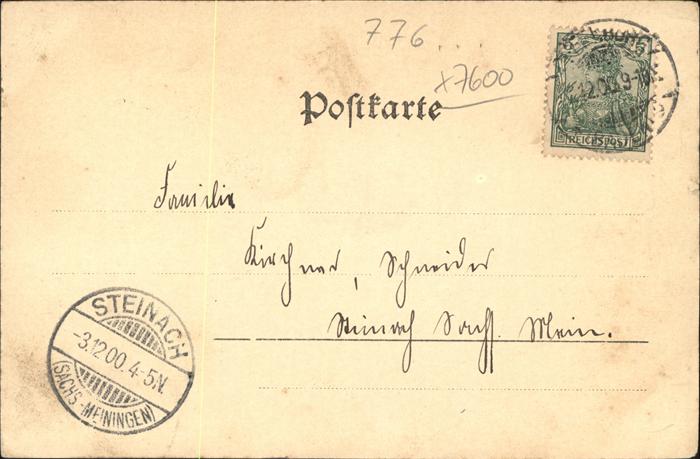 776...
x7600
5 5
REICHSPOST
Postkarte
Familie
Kirchner, Schneider
Steinach Sachs. Mein.
STEINACH
-3.12.00.4-5N.
(SACHS-MEININGEN)